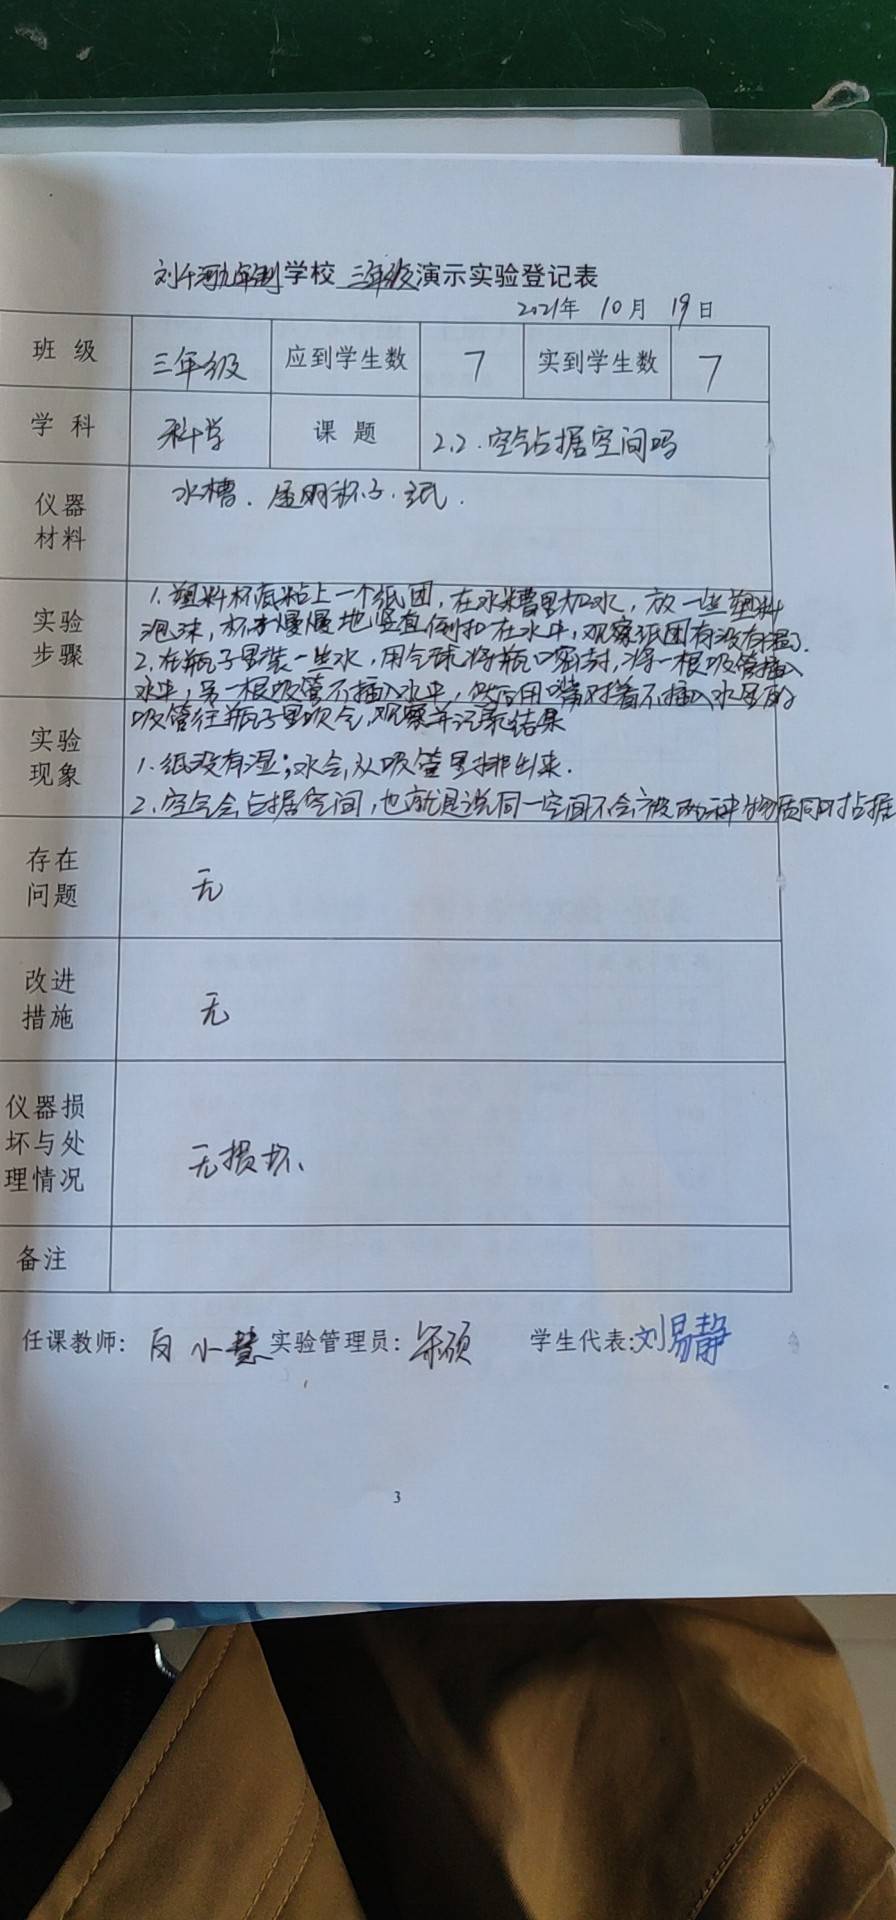 刘千河九年制学校 三年级 演示实验登记表
2021年 10月 19日
班级 三年级 应到学生数 7 实到学生数 7
学科 科学 课题 2.2.空气占据空间吗
仪器材料 水槽.透明杯子.纸.
实验步骤
1.塑料杯底粘上一个纸团,在水槽里加水,放一些塑料
泡沫,杯子慢慢地竖直倒扣在水中,观察纸团有没有湿.
2.在瓶子里装一些水,用气球将瓶口密封,将一根吸管插入
水中,另一根吸管不插入水中,然后用嘴对着不插入水里的
吸管往瓶子里吹气,观察并记录结果
实验现象
1.纸没有湿;水会从吸管里排出来.
2.空气会占据空间,也就是说同一空间不会被两种物质同时占据
存在问题 无
改进措施 无
仪器损坏与处理情况 无损坏、
备注
任课教师: 白小慧 实验管理员: 学生代表:刘易静
3